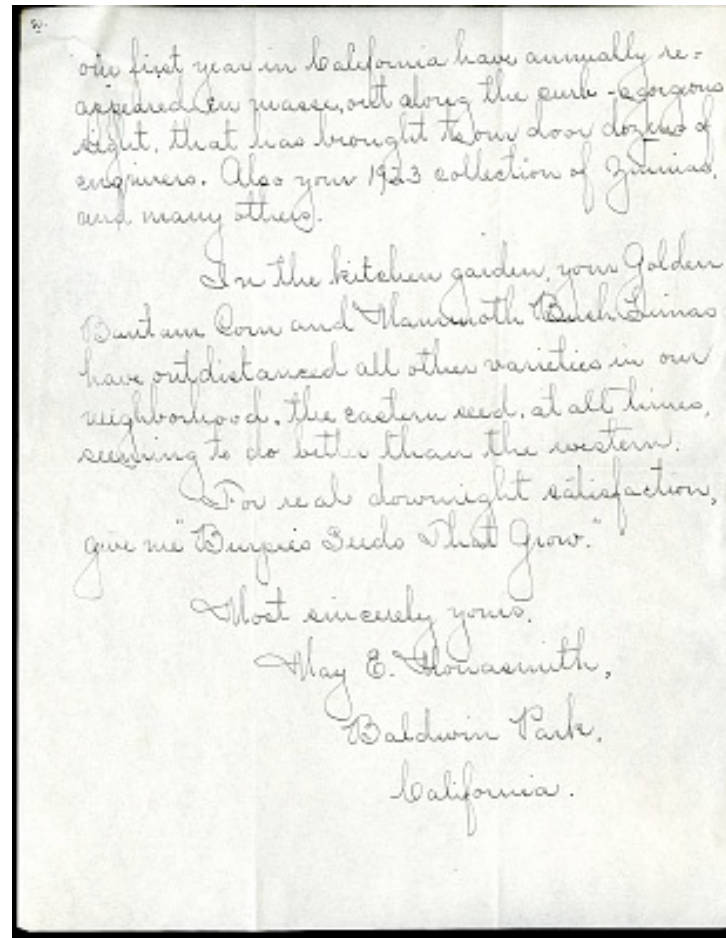 2.
our first year in California have annually re-
appeared en masse, out along the curb - a gorgeous
sight, that has brought to our door dozens of
enquirers. Also your 1923 collection of Zinnias,
and many others.
In the kitchen garden, your Golden
Bantam Corn and Mammoth Bush Limas
have outdistanced all other varieties in our
neighborhood, the eastern seed, at all times,
seeming to do better than the western.
For real downright satisfaction,
give me "Burpees Seeds That Grow."
Most sincerely yours,
May E.
Baldwin Park,
California.